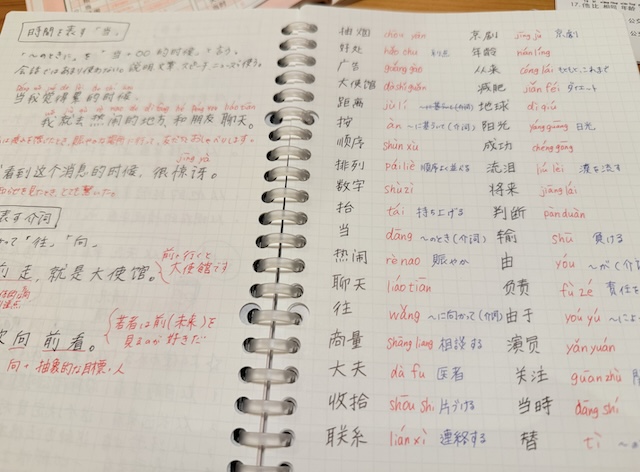 時間を表す「当」
「〜のときに」を「当+○○的时候」と言う。
会話ではあまり使わない。説明文章、スピーチ、ニュースに使う。
当我觉得累的时候、
我就去热闹的地方和朋友聊天。
jīng yà
看到这个消息的时候，很惊讶。
表す介词
「往」「向」
前走，就是大使馆。
前へ行くと
大使館です
向前看。
若者は前(未来)を
見るのが好きだ
向+抽象的な目標・人
抽烟 chōu yān 京剧 jīng jù 京劇
好处 hǎo chu 利点 年龄 nián líng
广告 guǎng gào 从来 cóng lái もともと、これまで
大使馆 dà shǐ guǎn 减肥 jiǎn féi ダイエット
距离 jù lí 地球 dì qiú
按 àn 〜に基づいて(介词) 阳光 yáng guāng 日光
顺序 shùn xù 成功 chéng gōng
排列 pái liè 順序よく並べる 流泪 liú lèi 涙を流す
数字 shù zì 将来 jiāng lái
抬 tái 持ち上げる 判断 pàn duàn
当 dāng 〜のとき(介词) 输 shū 負ける
热闹 rè nao 賑やか 由 yóu 〜が(介
聊天 liáo tiān 负责 fù zé 責任を
往 wǎng 〜に向かって(介词) 由于 yóu yú 〜によ
商量 shāng liang 相談する 演员 yǎn yuán
大夫 dà fu 医者 关注 guān zhù
收拾 shōu shi 片づける 当时 dāng shí
联系 lián xì 連絡する 替 tì